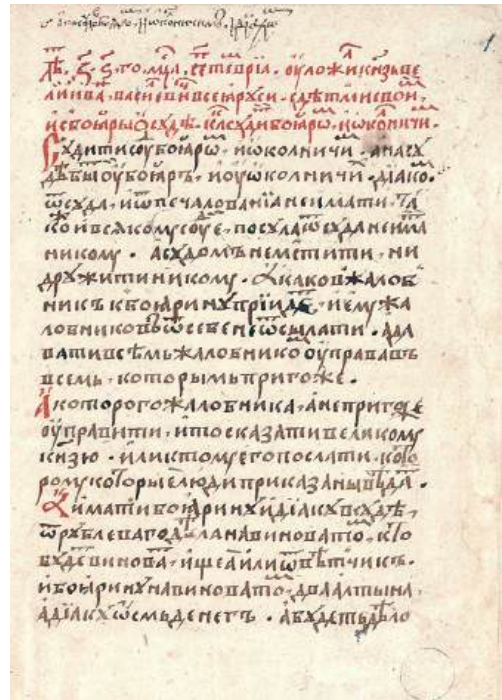 лѣ. ҂з҃. ѕ҃. го. мц҃а, септевріа. оуложи кнѧзь ве
ликїи ива. васильеви всеꙗ рꙋси. с дѣтми свои.
и с боꙗры ѡ сꙋдѣ. ка сꙋди боꙗрѡ. и ѡколничи.
Сꙋдити сꙋ боꙗрѡ. и ѡколничи. а на сꙋ
дѣ быти оу боꙗръ, и оу ѡколничи. дїако.
а посꙋлѡ боꙗрѡ. и ѡколничи. и дїакѡ
ѿ сꙋда, и ѿ печалованїа не имати. та
ко и всѧкомꙋ сꙋдїе, посꙋла ѿ сꙋда не има
никомꙋ. а сꙋдомъ не мстити, ни
дрꙋжити никомꙋ. а каков жалоб
никъ к боꙗринꙋ прїиде, и емꙋ жа
лобниковъ ѿ себе не ѿсылати. а да
вати всѣмъ жалобнико оуправа въ
всемь, которымъ пригоже.
А которого жалобника, а не пригоже
оуправити, и то сказати великомꙋ
кнѧзю. или к томꙋ его послати, кото
ромꙋ которые люди приказаны вѣда.
А имати боꙗринꙋ и дїакꙋ в сꙋдѣ,
ѿ рꙋблева го дѣла на виновато, кто
бꙋде винова, ищеа или ѿвѣтчикъ.
и боꙗринꙋ на виновато, два алтына,
а дїакꙋ ѡсмь денегъ. а бꙋдеть дѣло